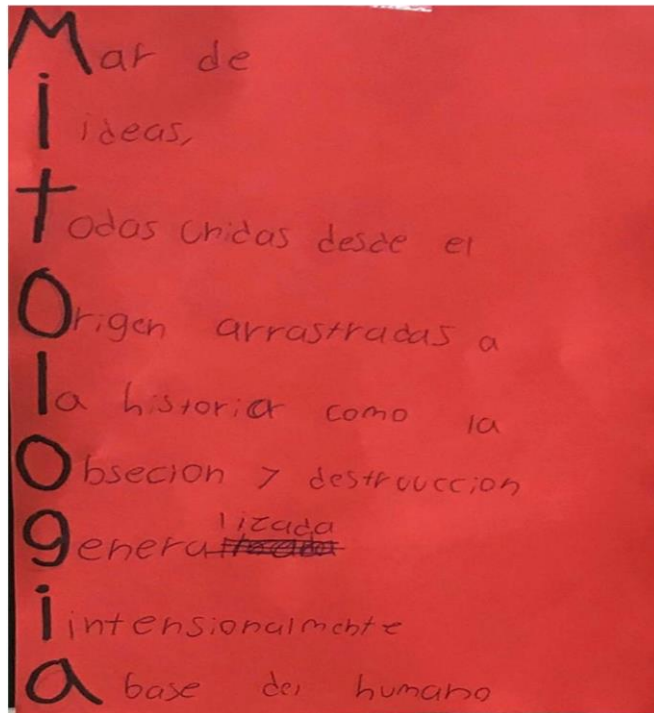 Mar de
i ideas,
Todas unidas desde el
Origen arrastradas a
la historia como la
Obsecion y destruccion
generalizada
i intensionalmente
a base del humano